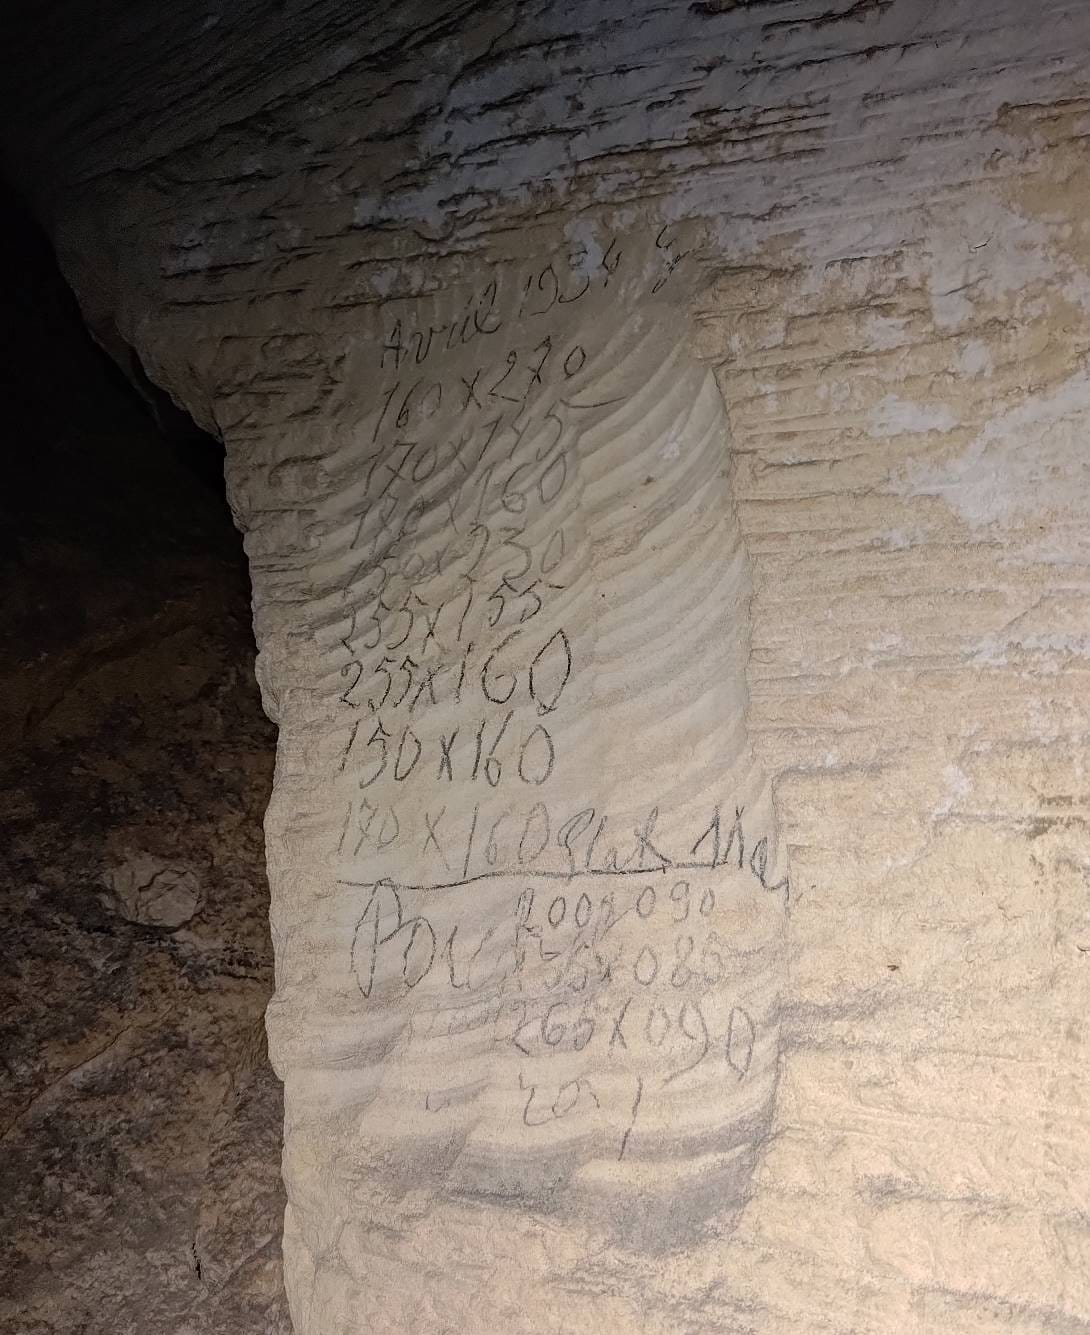 Avril 1934
160 x 270
170 x 145
180 x 160
150 x 230
255 x 155
255 x 160
150 x 160
170 x 160
Pou 200 x 090
155 x 085
265 x 090